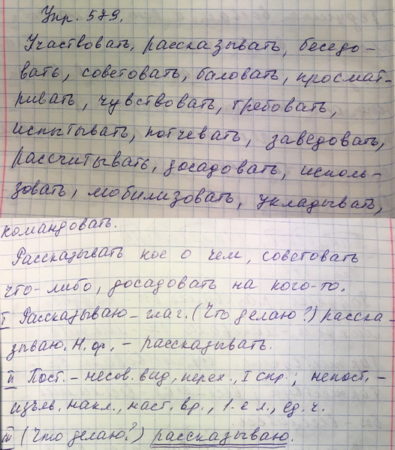 Упр. 579.
Участвовать, рассказывать, беседо-
вать, советовать, баловать, просмат-
ривать, чувствовать, требовать,
испытывать, потчевать, заведовать,
рассчитывать, досадовать, исполь-
зовать, мобилизовать, укладывать,
командовать.
Рассказывать кое о чем, советовать
что-либо, досадовать на кого-то.
I Рассказываю - глаг. (Что делаю?) расска
зываю. Н. ф. - рассказывать.
II Пост. - несов. вид, перех., I спр.; непост. -
изъяв. накл., наст. вр., 1-е л., ед. ч.
III (Что делаю?) рассказываю.